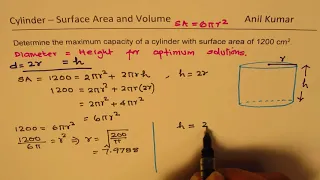 Cylinder – Surface Area and Volume SA = 6πr² Anil Kumar
Determine the maximum capacity of a cylinder with surface area of 1200 cm².
Diameter = Height for optimum solutions.
d = 2r = h
SA = 1200 = 2πr² + 2πrh , h = 2r
1200 = 2πr² + 2πr(2r)
= 2πr² + 4πr²
1200 = 6πr² = 6πr²
1200/6π = r² ⇒ r = √(200/π)
= 7.9788
h = 2
r
h